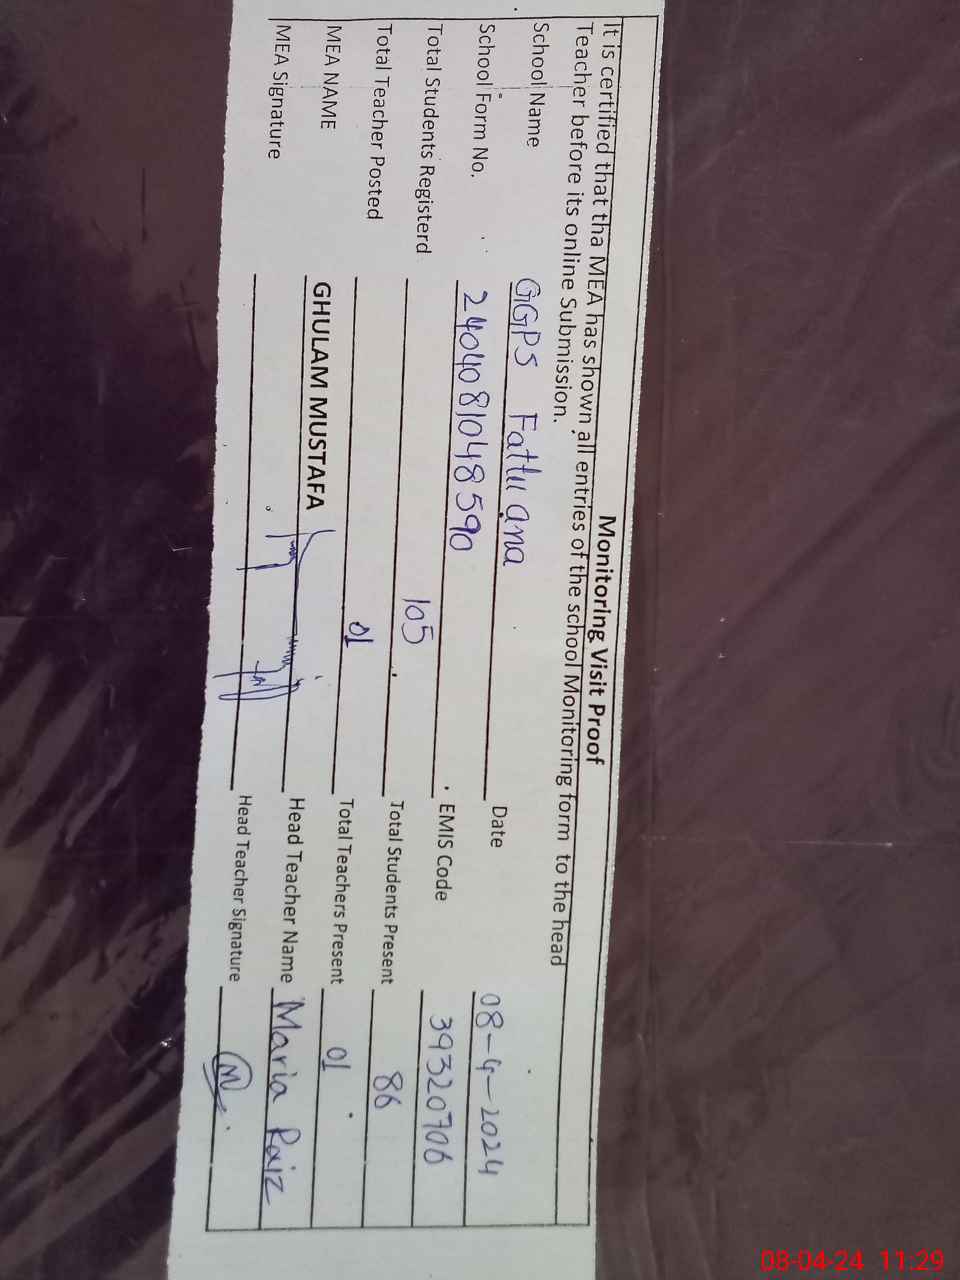 Monitoring Visit Proof
It is certified that tha MEA has shown all entries of the school Monitoring form to the head
Teacher before its online Submission.
School Name GGPS Fattuana Date 08-4-2024
School Form No. 2404081048590 EMIS Code 39320706
Total Students Registerd 105 Total Students Present 86
Total Teacher Posted 01 Total Teachers Present 01
MEA NAME GHULAM MUSTAFA Head Teacher Name Maria Raiz
MEA Signature Head Teacher Signature
08-04-24 11:29